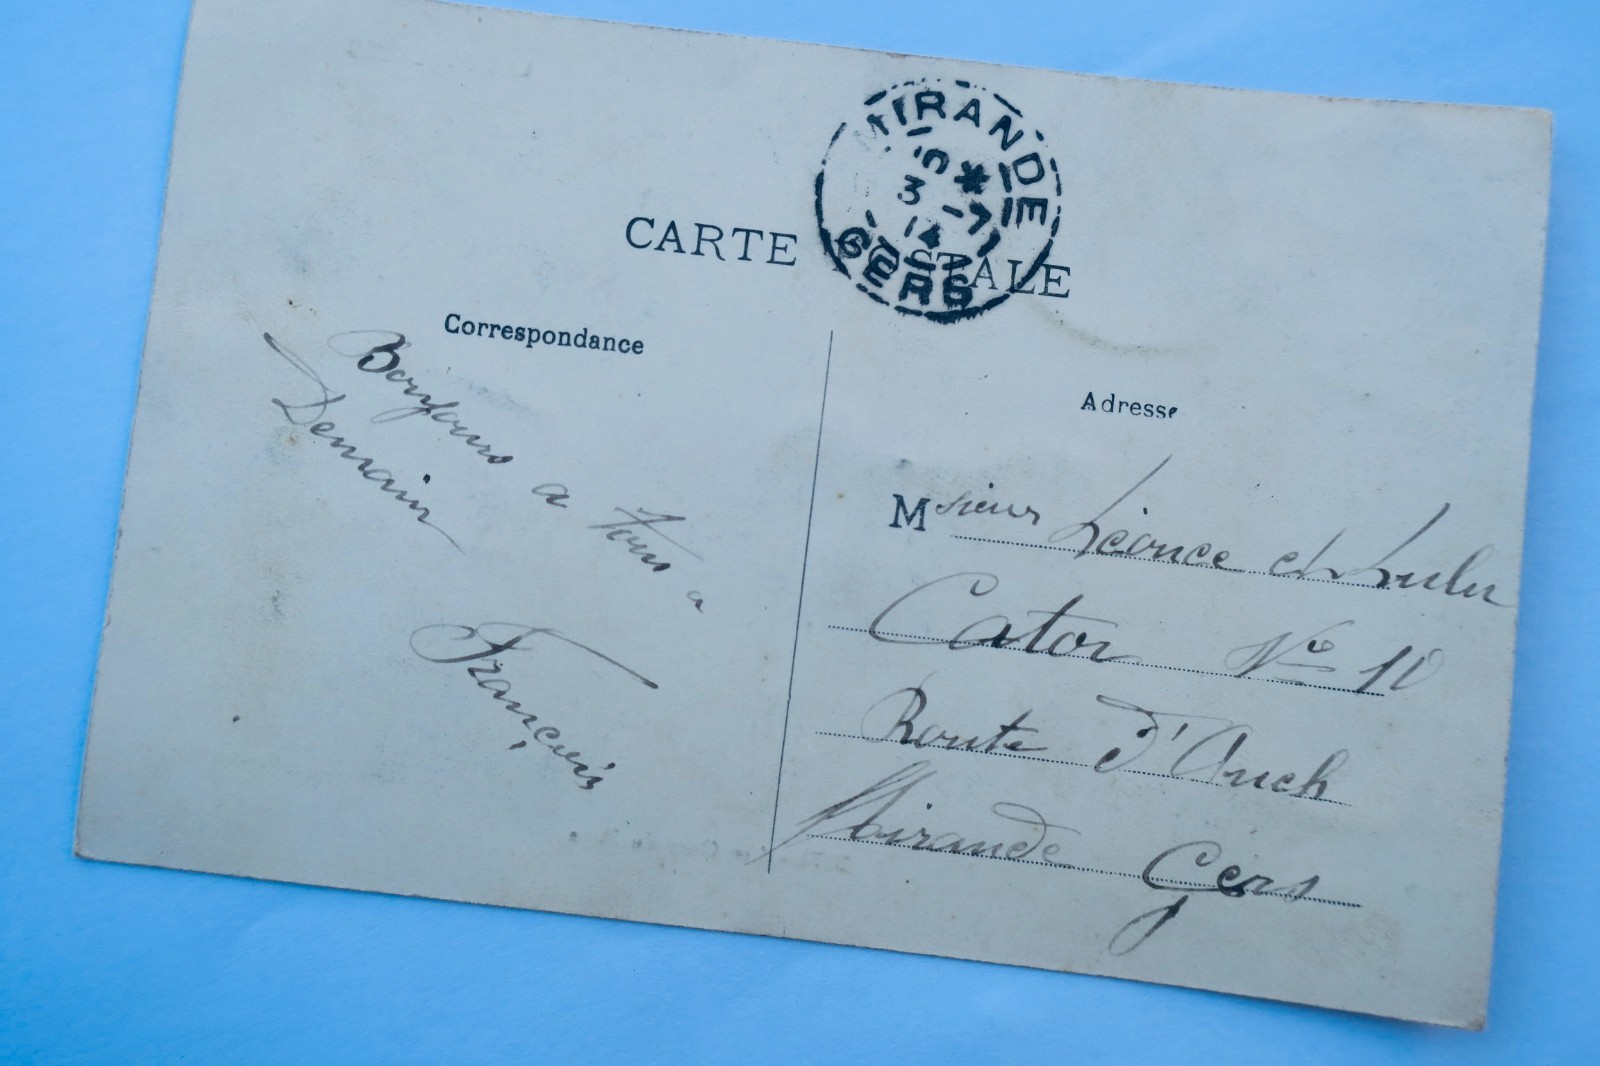 MIRANDE
3 -7
14
GERS
CARTE POSTALE
Correspondance
Bonjours a tous a
Demain
François
Adresse
Msieur Léonce et Lulu
Cator No 10
Route d'Auch
Mirande Gers